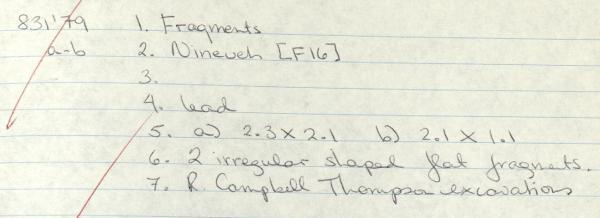 831'79 1. Fragments
a-b 2. Nineveh [F16]
3.
4. lead
5. a) 2.3 x 2.1 b) 2.1 x 1.1
6. 2 irregular shaped flat fragmets.
7. R. Campbell Thompson excavations